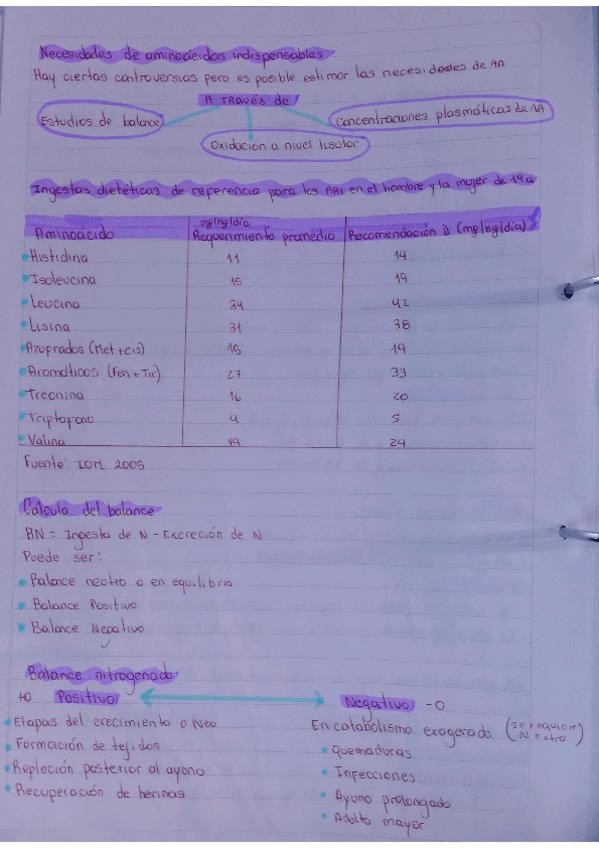 Necesidades de aminoácidos indispensables
Hay ciertas controversias pero es posible estimar las necesidades de AA
A TRAVÉS de
Estudios de balance
Oxidación a nivel tisular
Concentraciones plasmáticas de AA
Ingestas dietéticas de referencia para los AAI en el hombre y la mujer de 19a
Aminoácido | mg/kg/día Requerimiento promedio | Recomendación D (mg/kg/día)
Histidina 11 14
Isoleucina 15 19
Leucina 34 42
Lisina 31 38
Azufrados (Met + Cis) 15 19
Aromáticos (Fen + Tir) 27 33
Treonina 16 20
Triptofano 4 5
Valina 19 24
Fuente: IOM 2005
Cálculo del balance
BN = Ingesta de N - Excreción de N
Puede ser:
Balance neutro o en equilibrio
Balance Positivo
Balance Negativo
Balance nitrogenado
+0 Positivo
Etapas del crecimiento o Neo
Formación de tejidos
Repleción posterior al ayuno
Recuperación de heridas
Negativo -0
En catabolismo exagerado (se requiere N extra)
Quemaduras
Infecciones
Ayuno prolongado
Adulto mayor